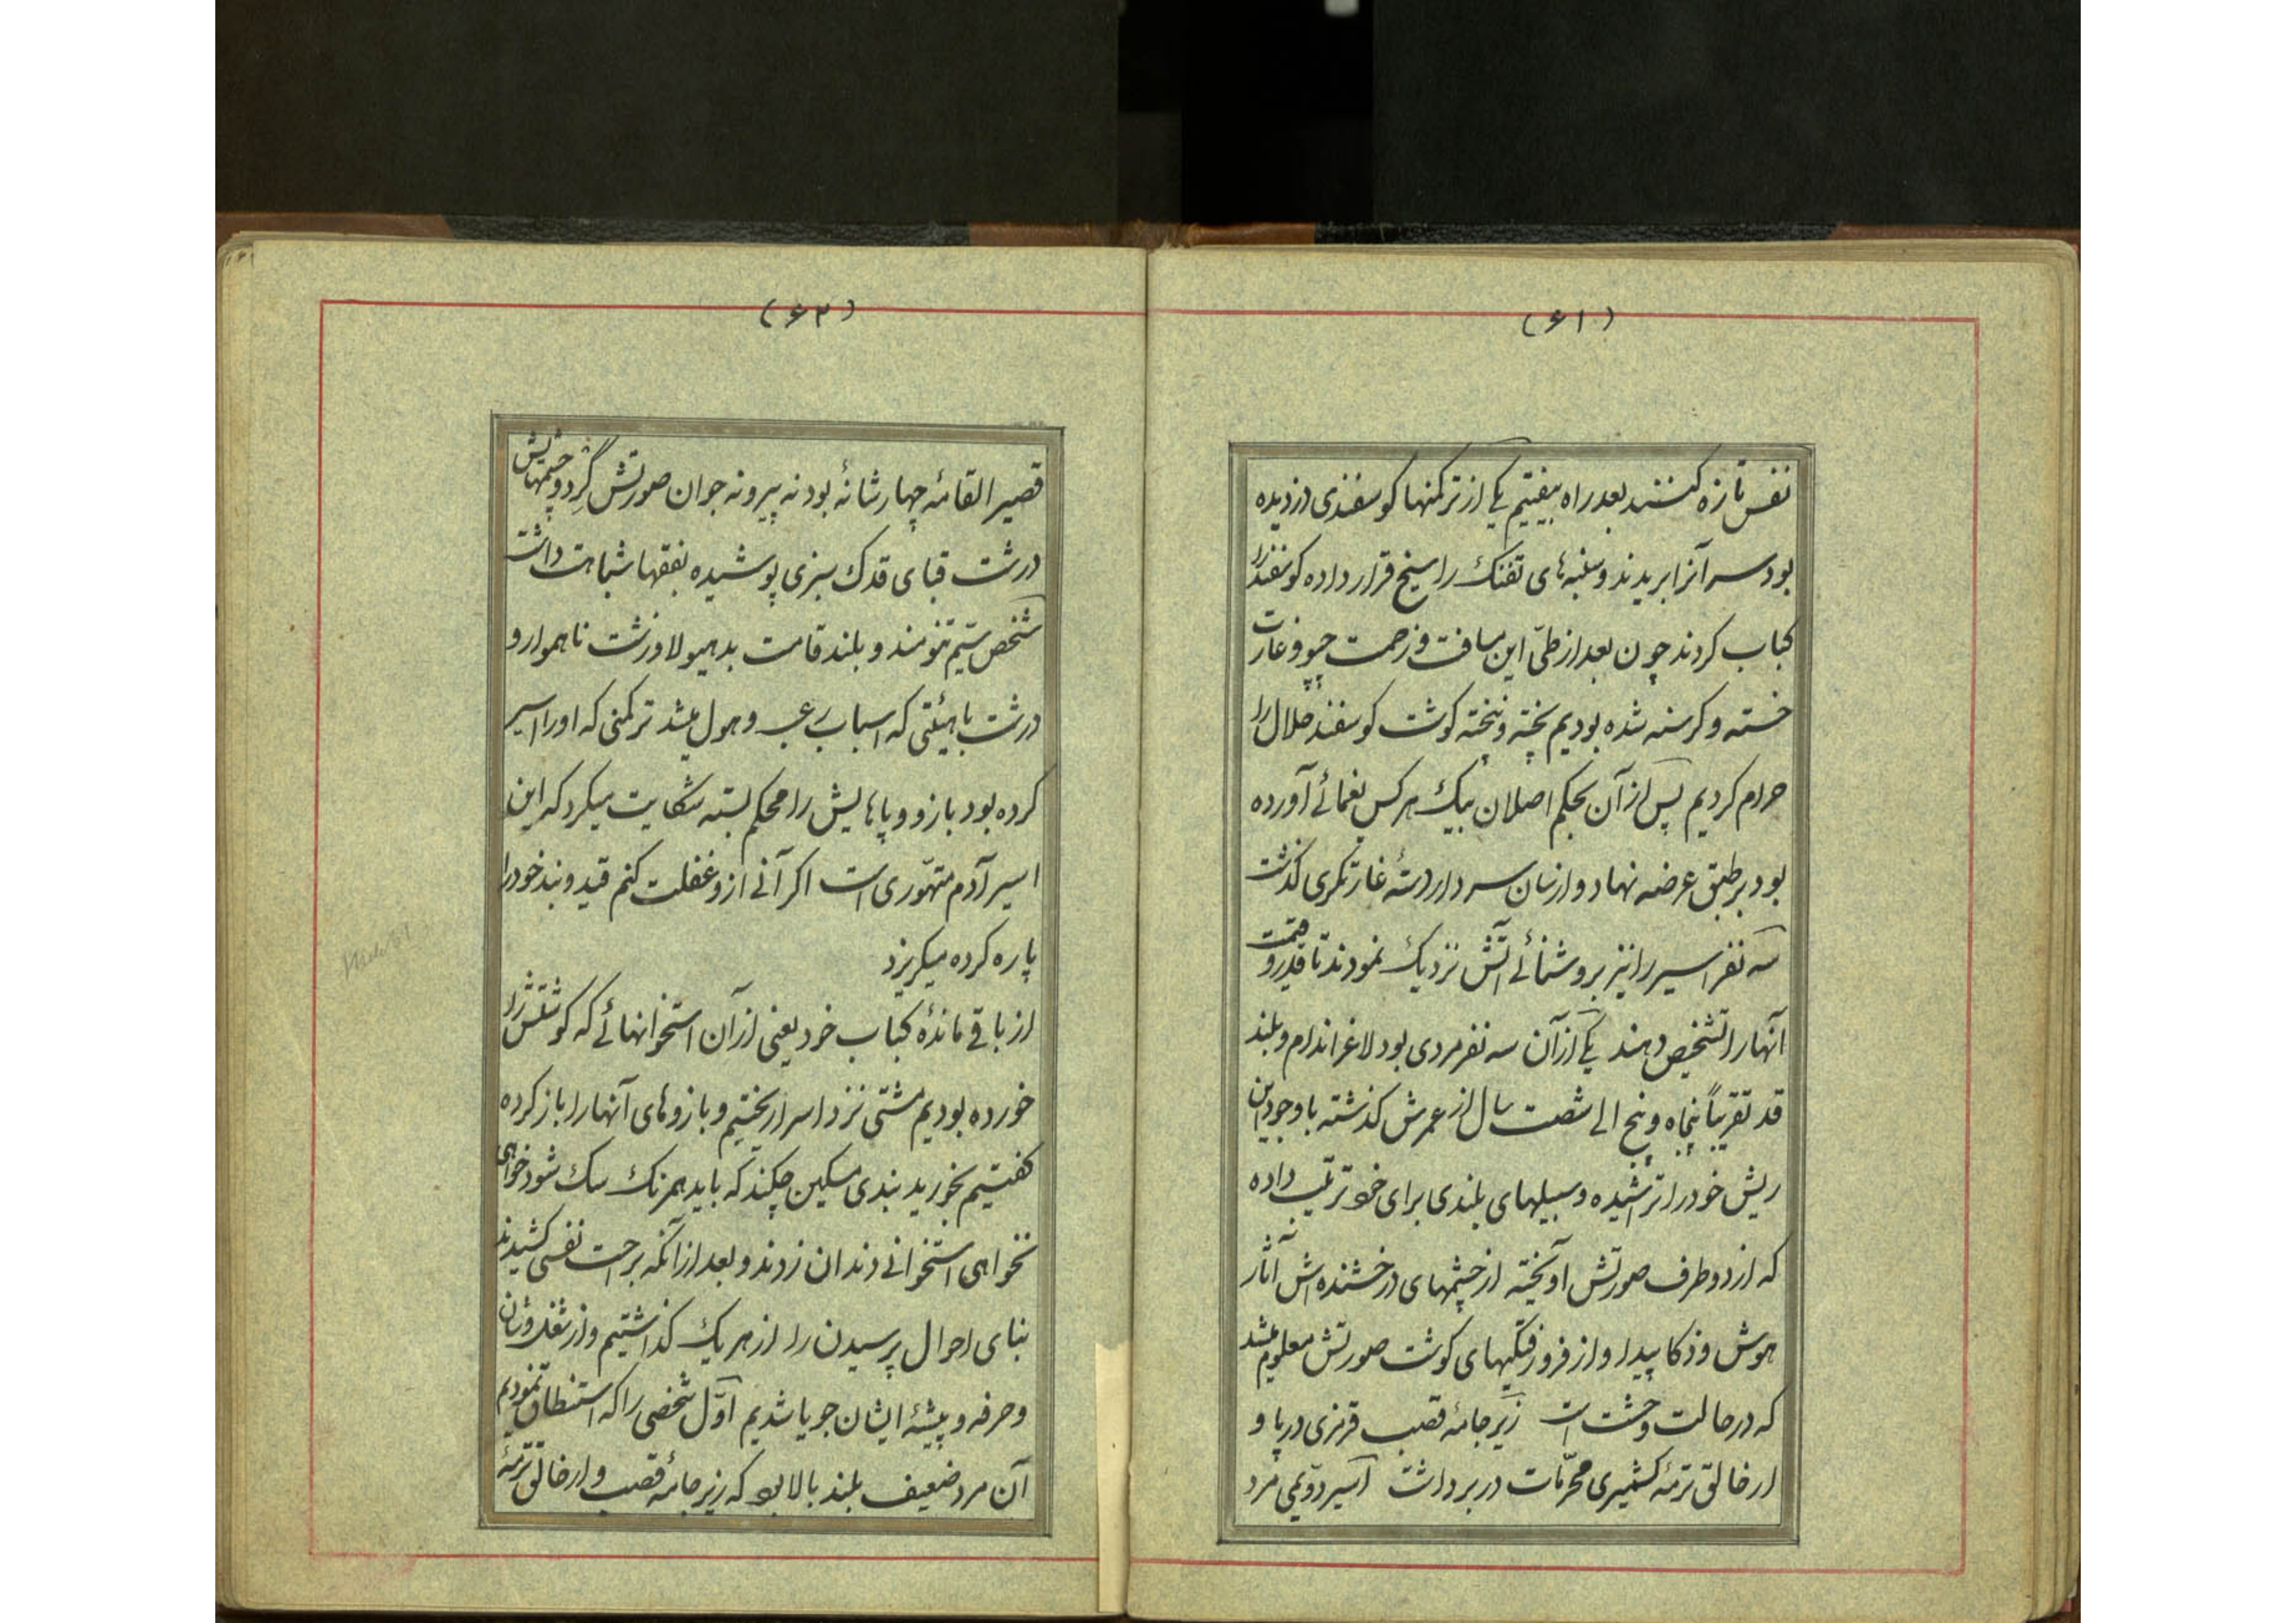 (۶۱)
نفس تازه کنند بعد راه بیفتیم یکی از ترکمنها کوسفندی دزدیده
بود سر آنرا بریدند و سنبه های تفنک را سیخ قرار داده کوسفند را
کباب کردند چون بعد از طیّ این مسافت و زحمت چپو و غارت
خسته و کرسنه شده بودیم پخته و نپخته کوشت کوسفند حلال را
حرام کردیم پس از آن بحکم اصلان بیک هر کس یغمائی آورده
بود بر طبق عرضه نهاد و از سان سردار دستهٔ غارتکری کذشت
سه نفر اسیر را نیز بروشنائی آتش نزدیک نمودند تا قدر و قیمت
آنها را تشخیص دهند یکی از آن سه نفر مردی بود لاغر اندام و بلند
قد تقریباً پنجاه و پنج الی شصت سال از عمرش کذشته با وجود این
ریش خود را تراشیده و سبیلهای بلندی برای خود ترتیب داده
که از دو طرف صورتش آویخته از چشمهای درخشنده اش آثار
هوش و ذکا پیدا و از فرو رفتکیهای کوشت صورتش معلوم میشد
که در حالت وحشت است زیر جامهٔ قصب قرمزی در پا و
ارخالق ترمهٔ کشمیری محرّمات در بر داشت اسیر دوّیمی مرد
(۶۲)
قصیر القامهٔ چهار شانهٔ بود نه پیر و نه جوان صورتش گِرد و چشمهایش
درشت قبای قدک سبزی پوشیده بفقها شباهت داشت
شخص سیّم تنومند و بلند قامت بد هیولا و زشت ناهموار و
درشت با هیئتی که اسباب رعب و هول میشد ترکمنی که او را اسیر
کرده بود بازو و پاهایش را محکم بسته شکایت میکرد که این
اسیر آدم متهوّری است اکر آنی ازو غفلت کنم قید و بند خود را
پاره کرده میکریزد
از باقی ماندهٔ کباب خود یعنی از آن استخوانهائی که کوشتش را
خورده بودیم مشتی نزد اسرا ریختیم و بازوهای آنها را باز کرده
کفتیم بخورید بندی مسکین چکند که باید همرنک سک شود خواهی
نخواهی استخوانی دندان زدند و بعد از آنکه براحت نفسی کشیدند
بنای احوال پرسیدن را از هر یک کذاشتیم و از شغل و شان
و حرفه و پیشهٔ ایشان جویا شدیم اوّل شخصی را که استنطاق نمودیم
آن مرد ضعیف بلند بالا بود که زیر جامهٔ قصب و ارخالق ترمهٔ